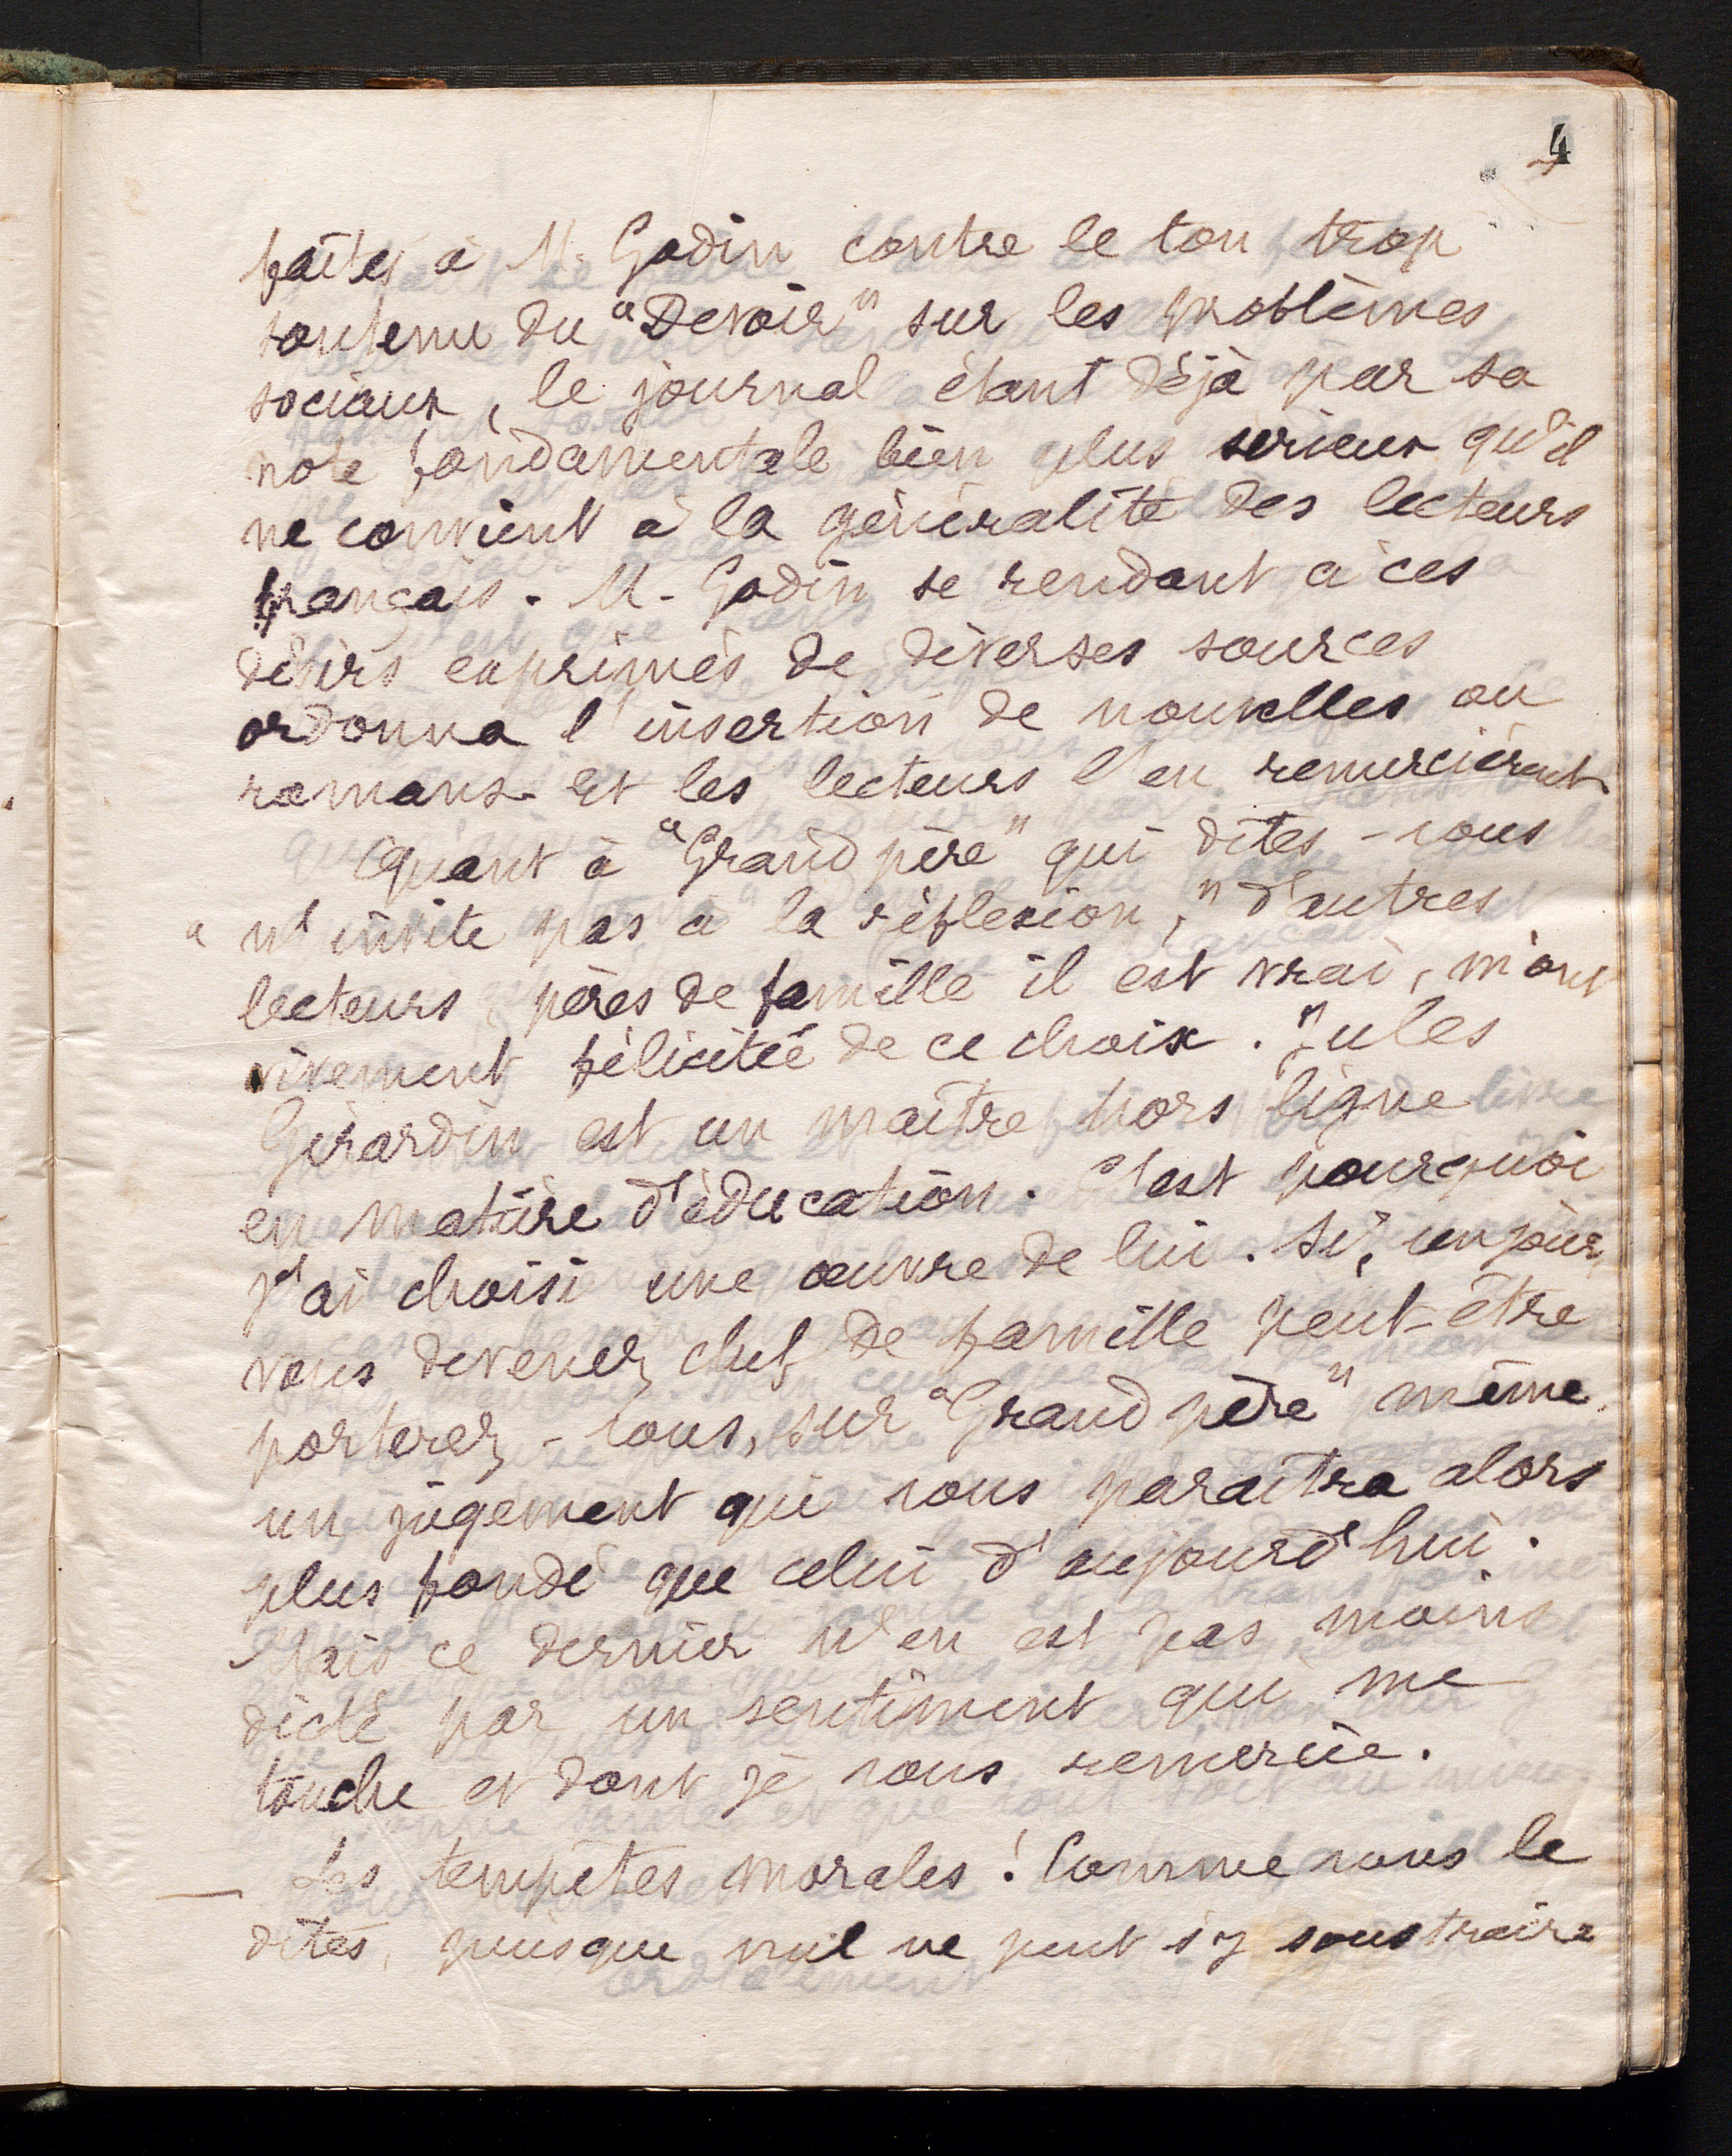 4
faites à M. Godin contre le ton trop
soutenu du "Devoir" sur les problèmes
sociaux, le journal étant déjà par sa
note fondamentale bien plus sérieux qu'il
ne convient à la généralité des lecteurs
français. M. Godin se rendant à ces
désirs exprimés de diverses sources
ordonna l'insertion de nouvelles ou
romans. Et les lecteurs l'en remercièrent
Quant à "Grand père" qui dites-vous
" n'invite pas à la réflexion," d'autres
lecteurs, pères de famille il est vrai, m'ont
vivement félicitée de ce choix. Jules
Girardin est un maître hors ligne
en matière d'éducation. C'est pourquoi
j'ai choisi une œuvre de lui. Si, un jour,
vous devenez chef de famille peut-être
porterez-vous, sur "Grand père" même
un jugement qui vous paraîtra alors
plus fondé que celui d'aujourd'hui.
Mais ce dernier n'en est pas moins
dicté par un sentiment qui me
touche et dont je vous remercie.
— Les tempêtes morales! Comme vous le
dites, puisque nul ne peut s'y soustraire